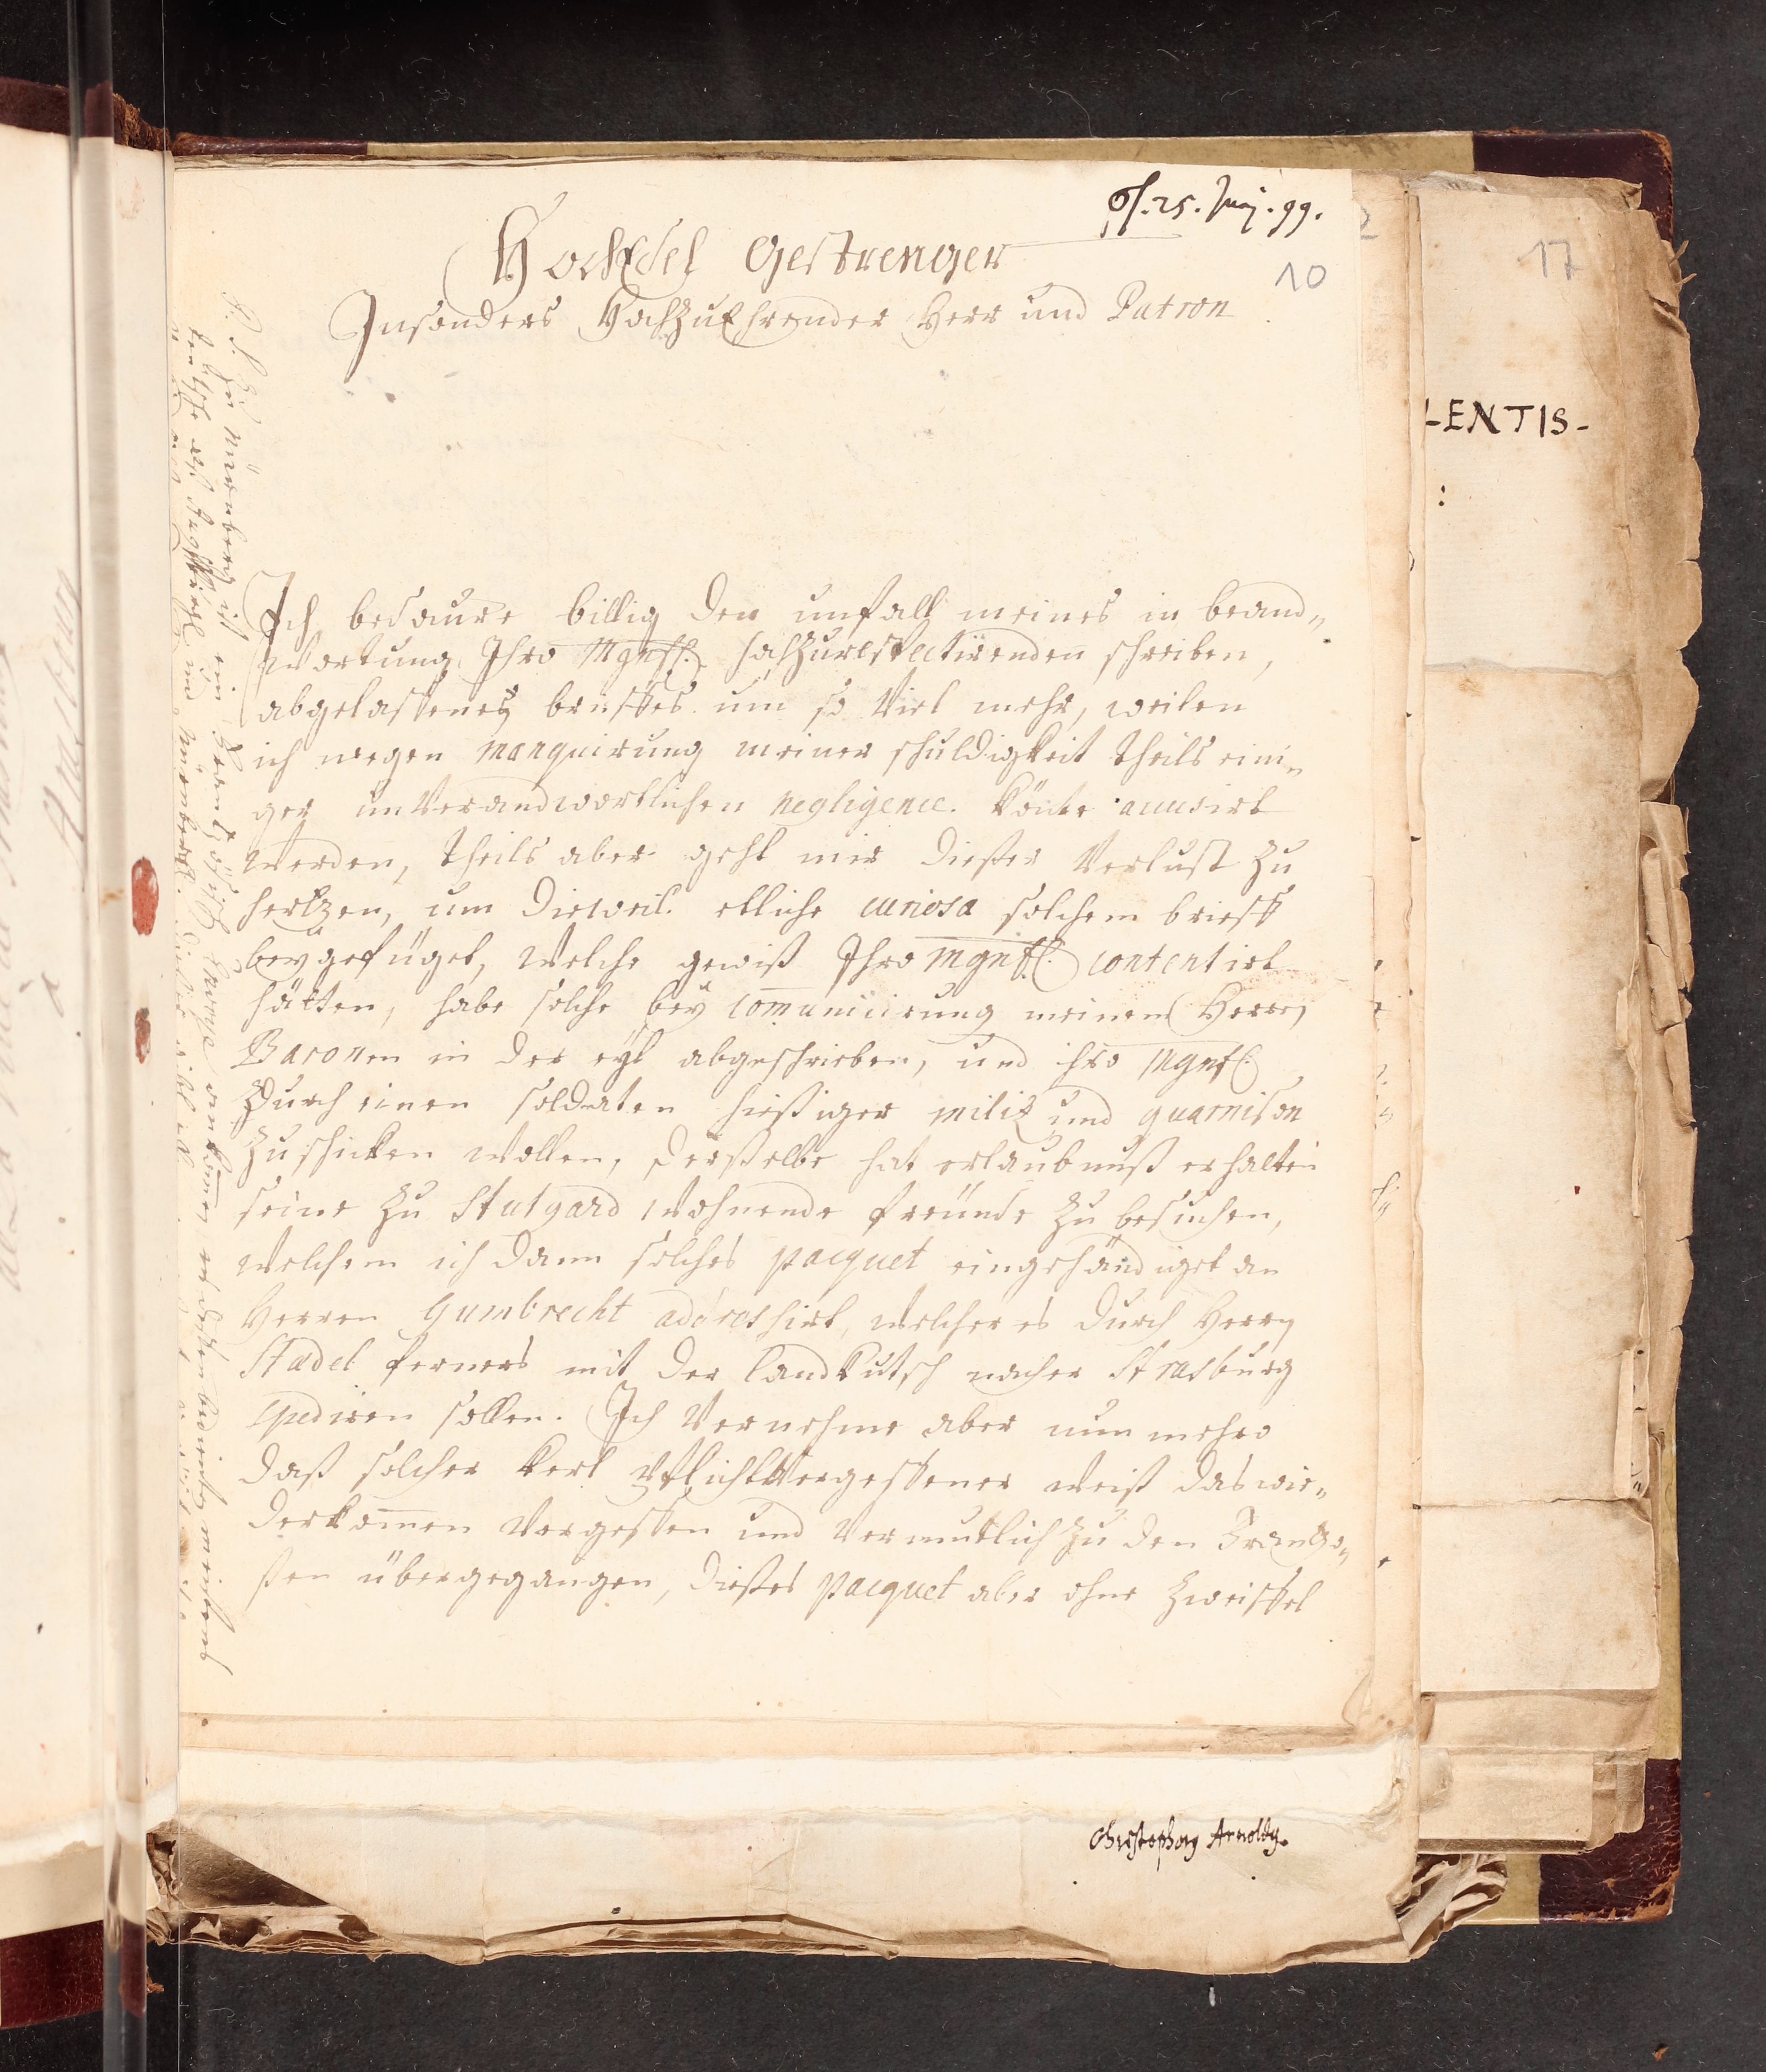 Of. 25. Junj. 99.
10
17
HochEdel Gestrenger
Insonders HochzuEhrender Herr und Patron
LENTIS-
:
Ich bedaure billig den unfall meines in beand„
wortung Ihro Mgnff. hochzurespectirenden schreiben,
abgelassenes brieffes um so viel mehr, weilen
ich wegen manquirung meiner schuldigkeit theils eini„
ger unverandwortlichen negligence. könte accusirt
werden, theils aber geht mir dießer verlust zu
hertzen, um dieweil. etliche curiosa solchem brieff
beygefüget, welche gewiß Ihro Mgnff. contentirt
hätten, habe solche bey com̄unicirung meinem Herrn
Baronen in der eyl abgeschrieben, und ihro Mgnf.
durch einen soldaten hießiger militz und guarnison
zuschicken wollen, derßelbe hat erlaubnuß erhalten
seine zu Stutgard wohnende freünde zu besuchen,
welchem ich dann solches pacquet eingehändiget an
Herren Gumbrecht addresshirt, welcher es durch Herrn
Stadel ferners mit der landkutsch nacher Strasburg
spediren sollen. Ich vernehme aber nun mehro
daß solcher kerl pflichtvergessener weiß das wie„
derkom̄en vergessen und vermutlich zu den Frantzo„
ßen übergegangen, dießes pacquet aber ohne zweiffel
P. S. Zu Nürnberg ist ein
Christophorg Arnoldg.